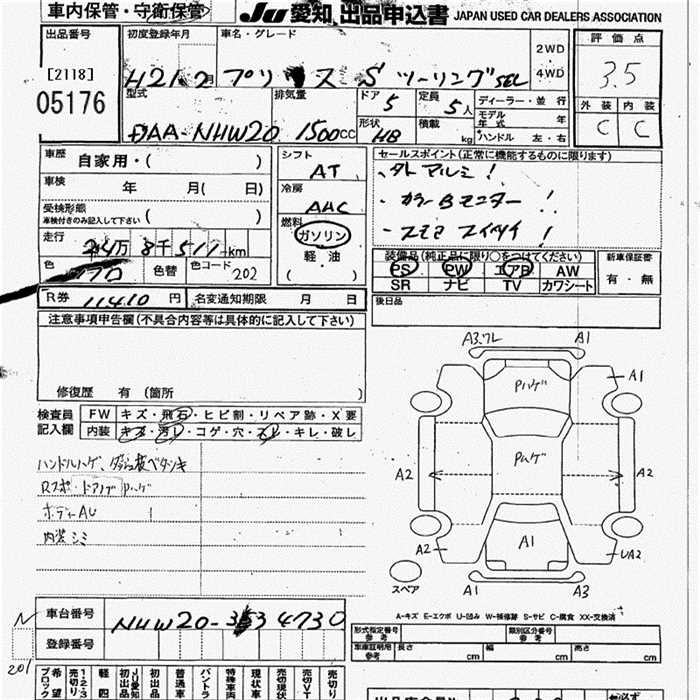 車内保管・守衛保管
JU 愛知 出品申込書 JAPAN USED CAR DEALERS ASSOCIATION
出品番号
[2118]
05176
初度登録年月
H21.2月
車名・グレード
プリウス S ツーリングSEL
2WD
4WD
評価点
3.5
外装 内装
C C
型式
DAA-NHW20
排気量
1500cc
ドア
5
定員
5人
形状
HB
積載
kg
ディーラー・並行
モデル年式 年
ハンドル 左・右
車歴
自家用・( )
車検
年 月( 日)
受検形態
車検付きのみ記入して下さい ( )
走行
8千511km
色
色替
色コード 202
R券 11410円
名変通知期限 月 日
シフト
AT
冷房
AAC
燃料
ガソリン
軽油
( )
セールスポイント(正常に機能するものに限ります)
・外アルミ!
・カラーBモニター!
・スペア
装備品(純正品に限り○をつけてください)
PS PW エアB AW
SR ナビ TV カワシート
新車保証書
有・無
後日品
注意事項申告欄(不具合内容等は具体的に記入して下さい)
修復歴 有(箇所 )
検査員記入欄
FW キズ・飛石・ヒビ割・リペア跡・X要
内装 キズ・汚レ・コゲ・穴・スレ・キレ・破レ
ハンドルハゲ、
ボディーAU
内装シミ
A3.ワレ A1
A1
パハゲ
パハゲ
A2 A2
A1
A2 UA2
A1 A3
スペア
A-キズ E-エクボ U-凹み W-補修跡 S-サビ C-腐食 XX-交換済
車台番号
登録番号
N
201
型式指定番号 参考
類別区分番号 参考
車車証明用 参考
長さ cm
幅 cm
高さ cm